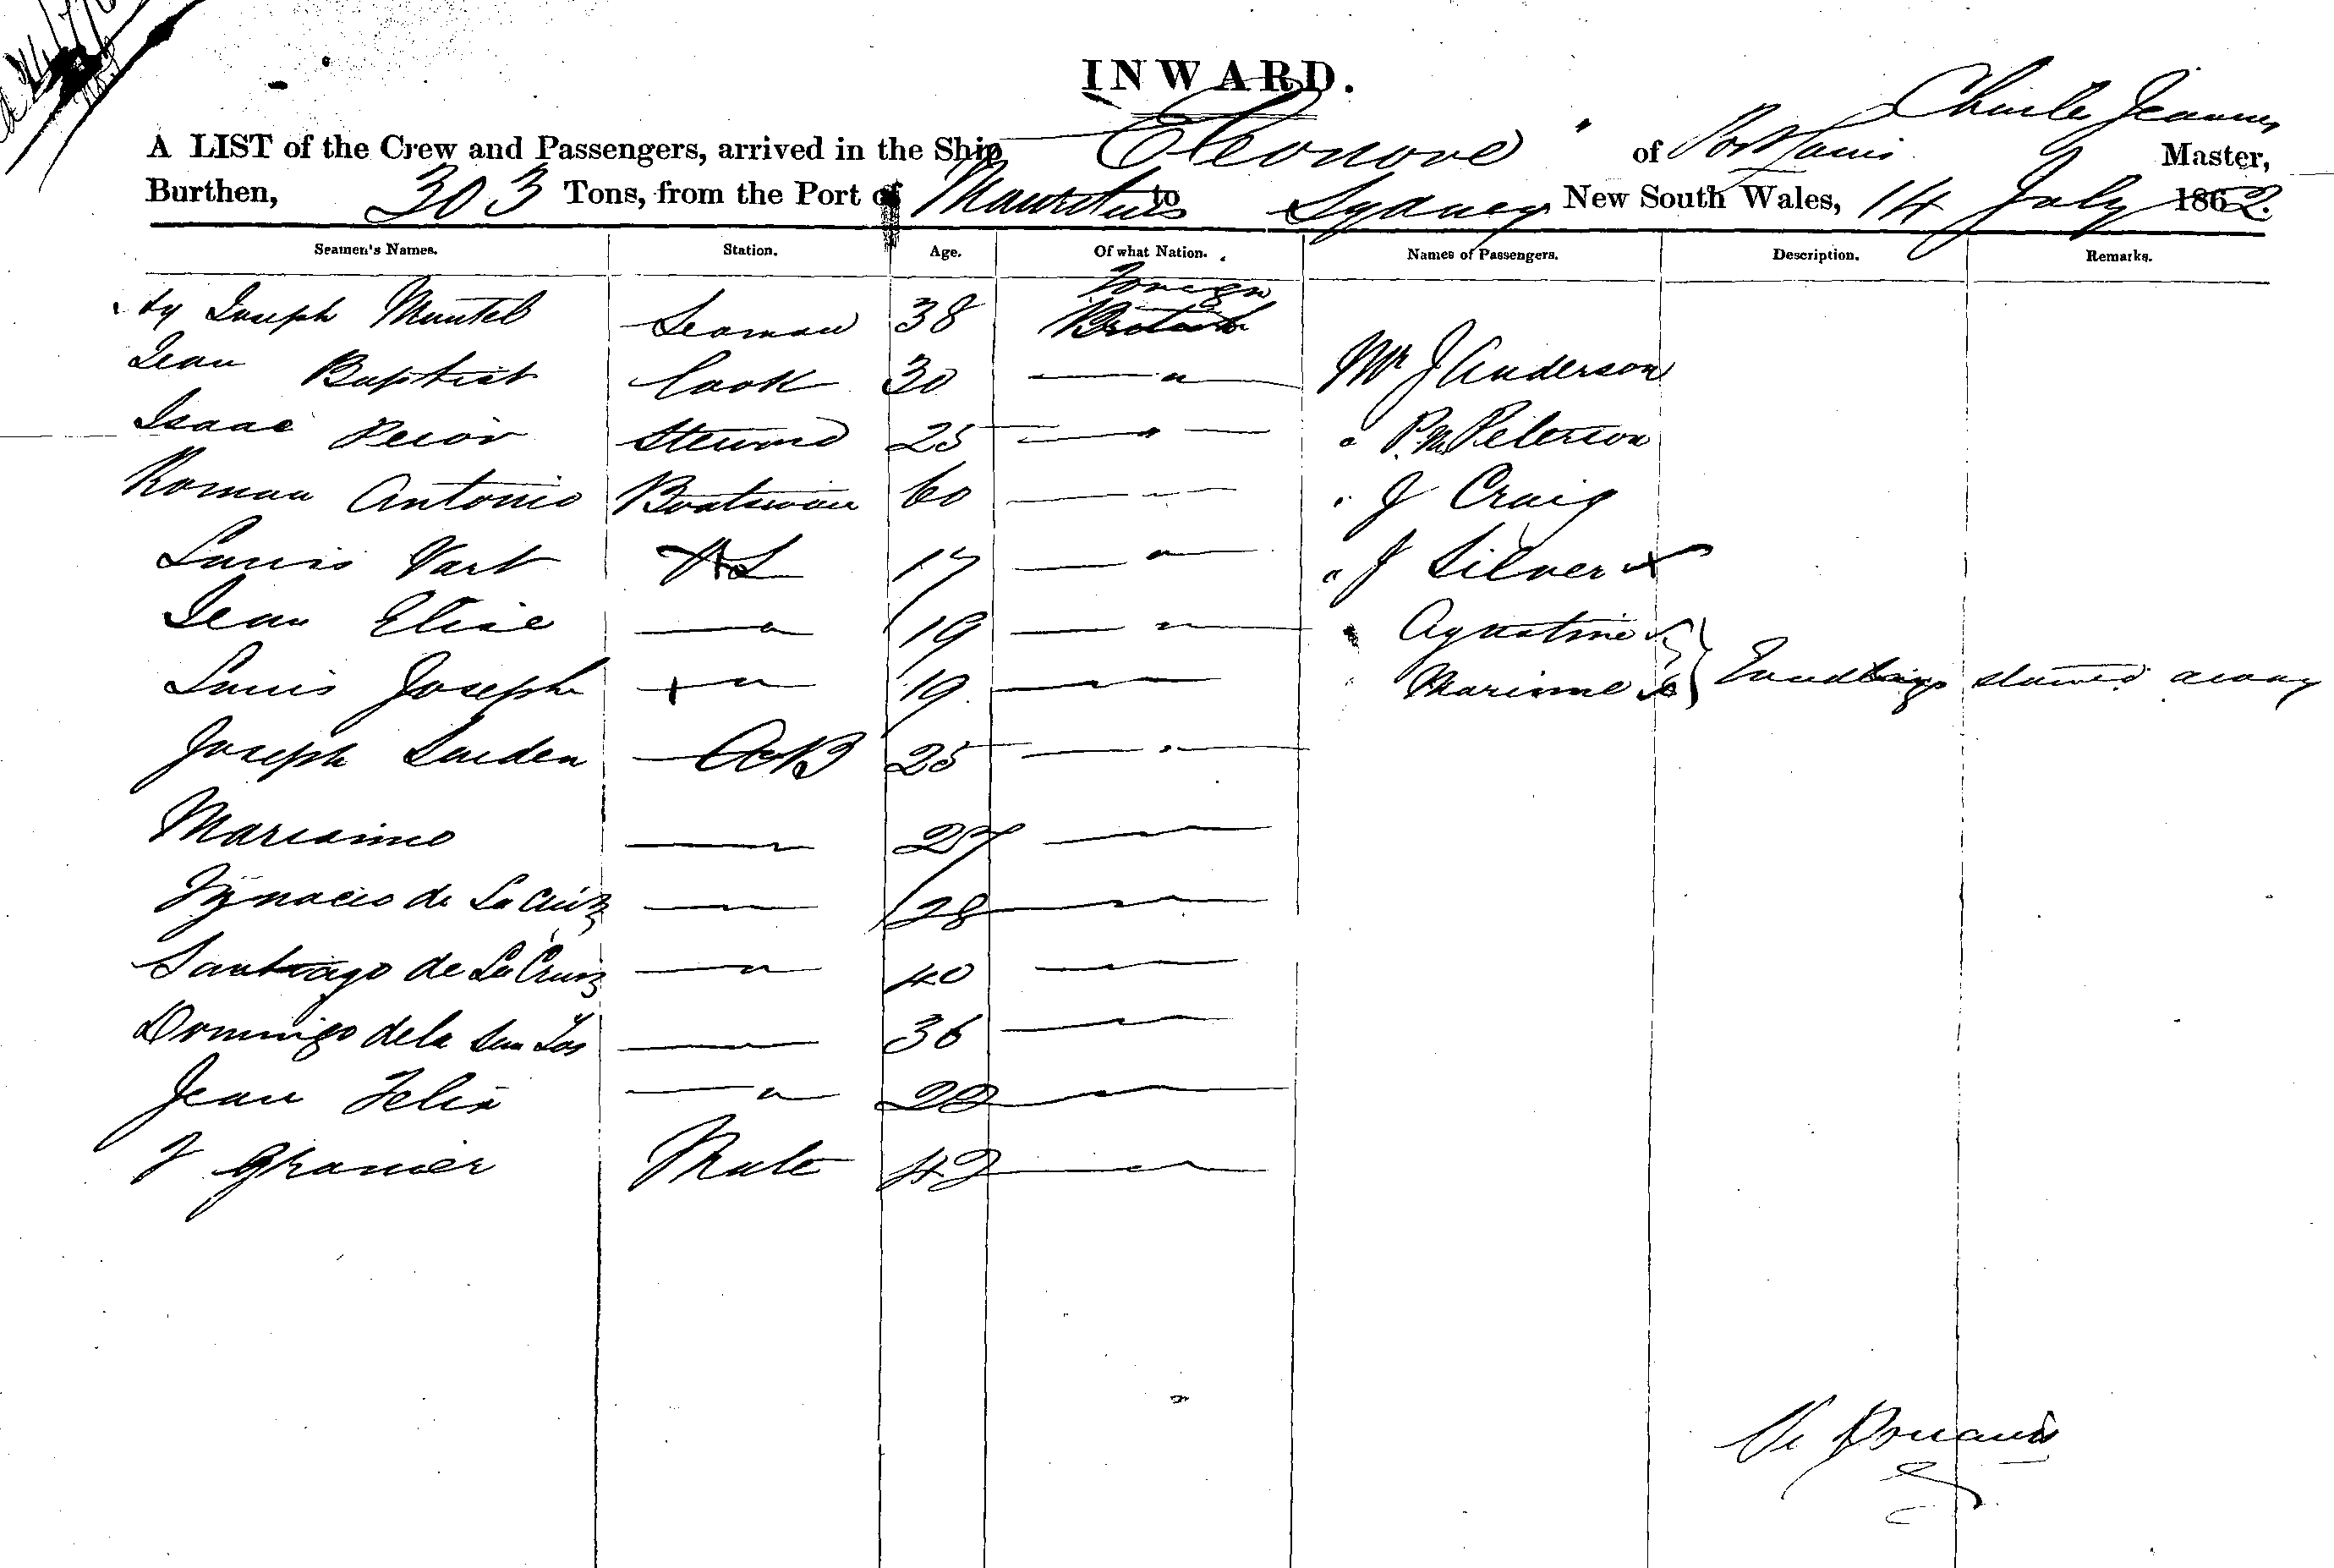 INWARD.
Charles Jeannes
A LIST of the Crew and Passengers, arrived in the Ship "Eleonore" of Port Louis Master,
Burthen, 303 Tons, from the Port of Mauritius to Sydney New South Wales, 14 July 1862.
Seamen's Names. Station. Age. Of what Nation. Names of Passengers. Description. Remarks.
Foreign
Joseph Mantel Seaman 38 British
Jean Baptist Cook 30 — " — Mr J Anderson
Isaac Steward 25 — " — " P. M. Peterson
Roman Antonio Boatswain 60 — " — " J Craig
Louis Vart 17 — " — " J Silver x
Jean Elise — " 19 — " — Agustine
Louis Joseph + " 19 — " — Marianne } stowed away
Joseph Lucden AB 25 — " —
Marcsimo — " 27 — " —
Ignacio de La Cruz — " 28 — " —
Santiago de La Cruz — " 40 — " —
Domingo de la — " 36 — " —
Jean Felix — " 22 — " —
J Granier Mate 42 — " —